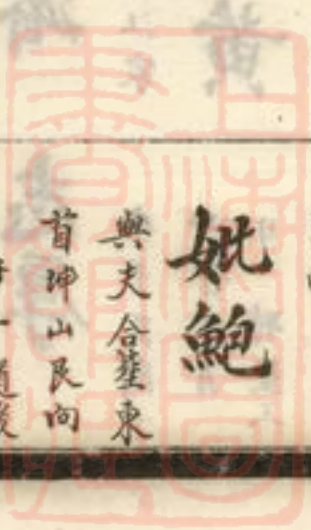 妣鮑
與夫合塟東
首坤山艮向